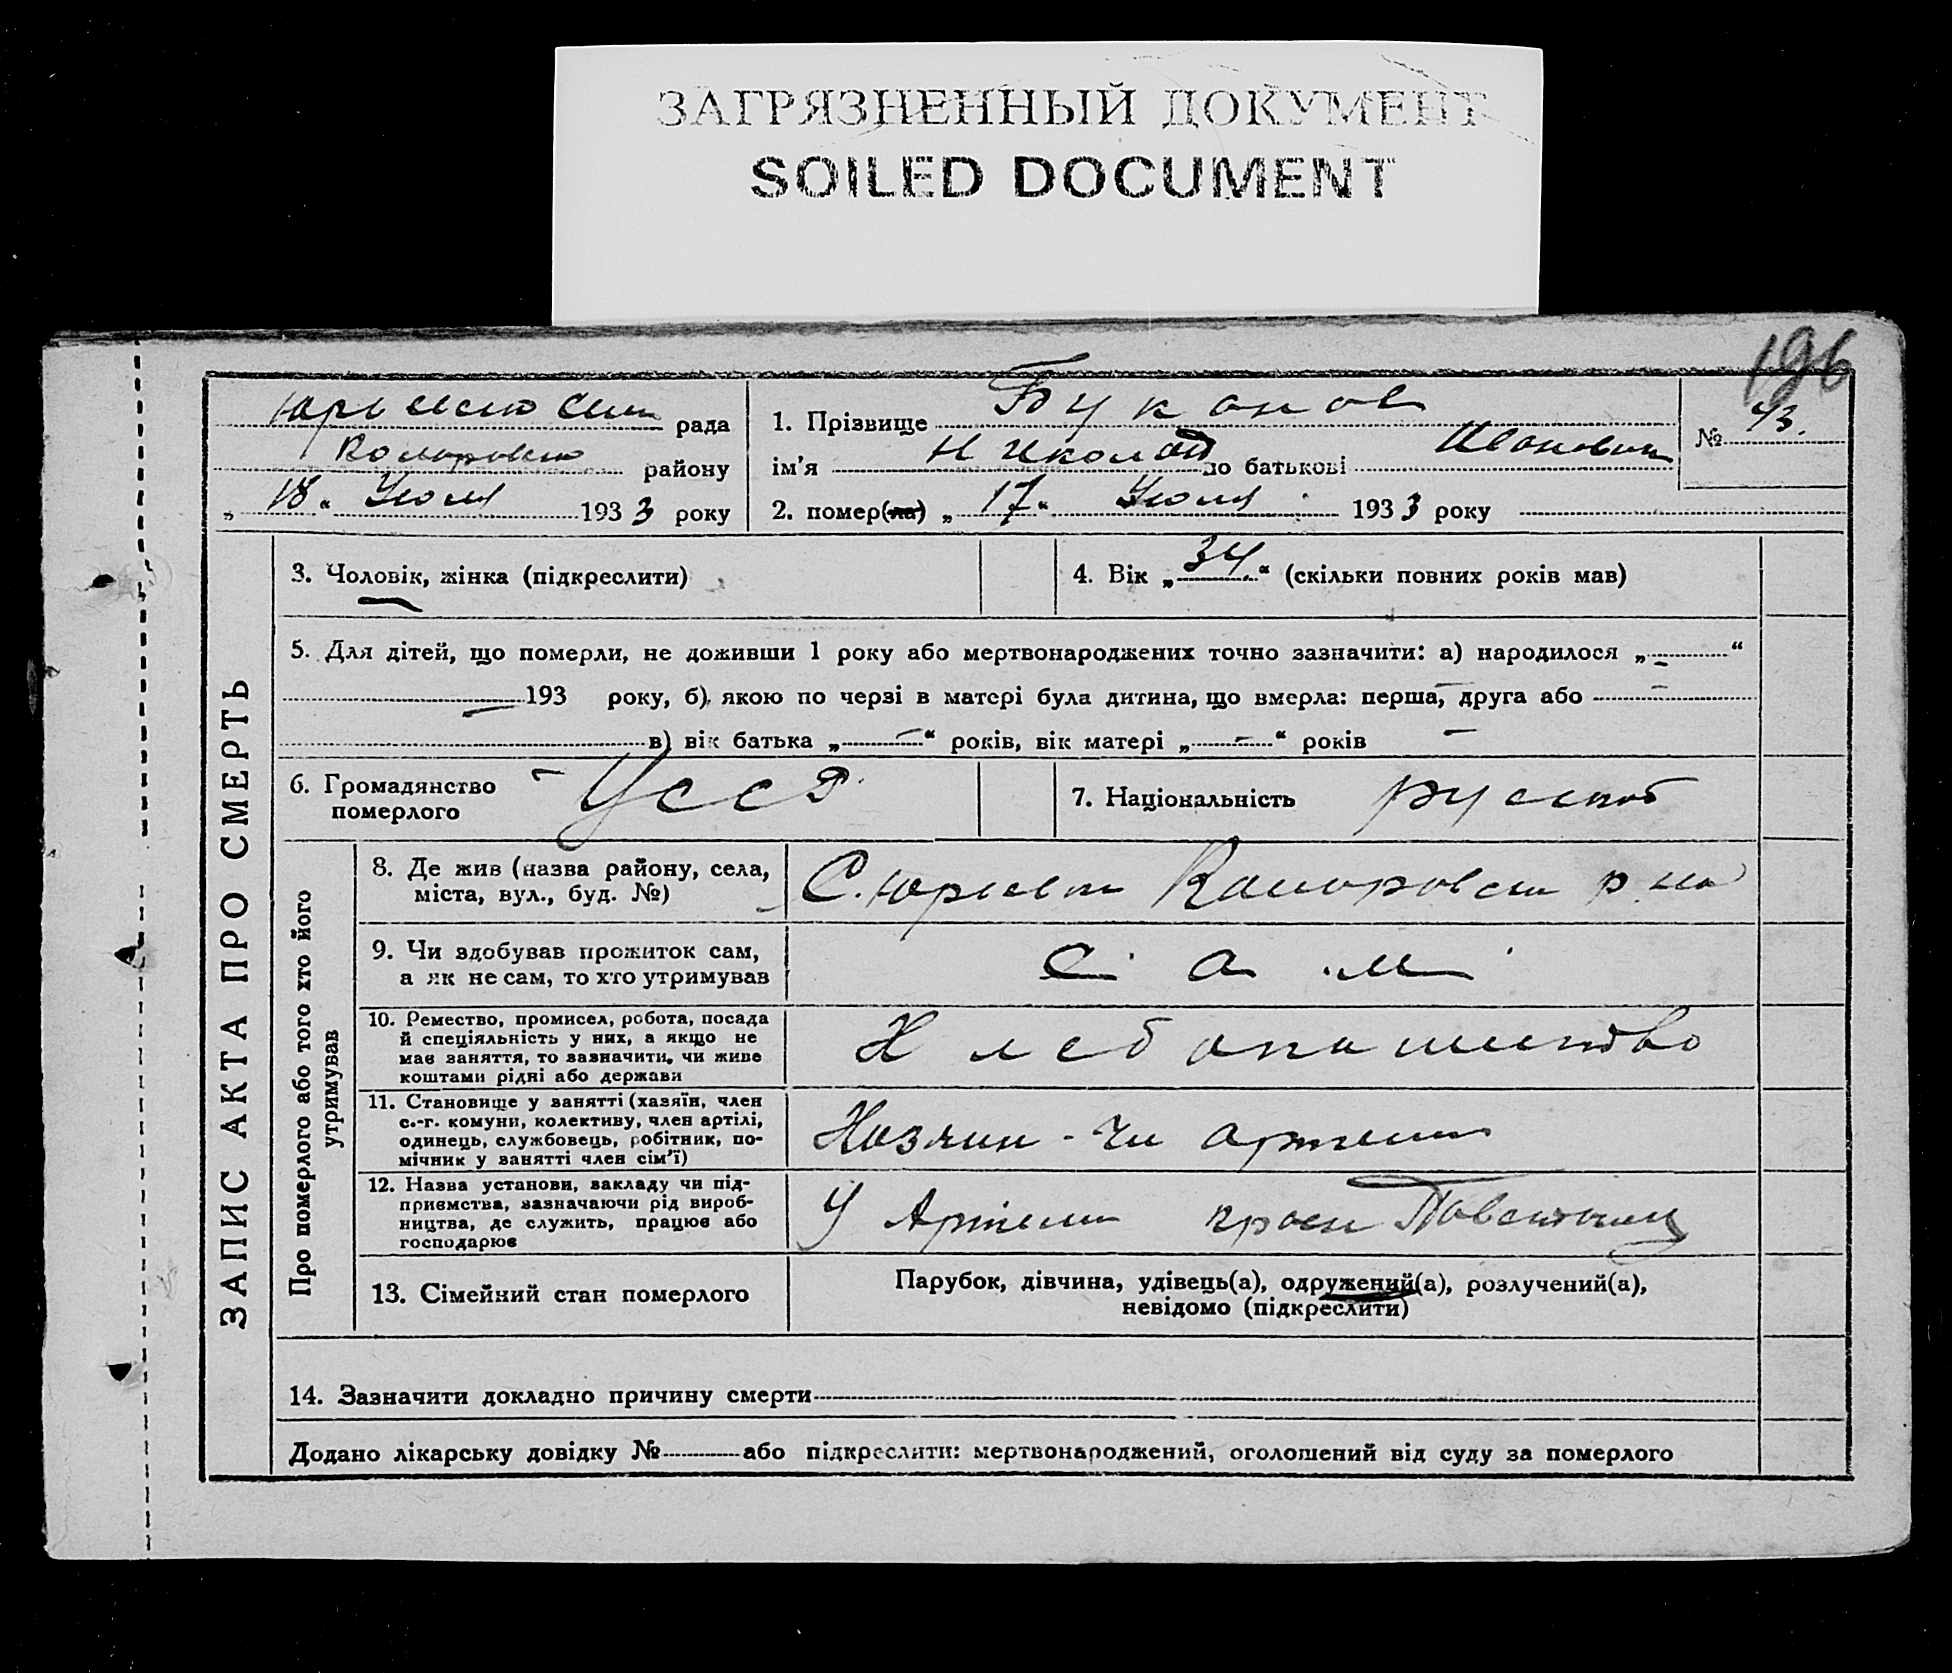 ЗАГРЯЗНЕННЫЙ ДОКУМЕНТ
SOILED DOCUMENT
196
рада
району
„18“ Июля 1933 року
1. Прізвище Буканов
ім'я Николай по батькові Иванович
№ 43.
2. помер(ла) „17“ Июля 1933 року
ЗАПИС АКТА ПРО СМЕРТЬ
3. Чоловік, жінка (підкреслити)
4. Вік „34.“ (скільки повних років мав)
5. Для дітей, що померли, не доживши 1 року або мертвонароджених точно зазначити: а) народилося „-“
193 року, б) якою по черзі в матері була дитина, що вмерла: перша, друга або -
в) вік батька „-“ років, вік матері „-“ років -
6. Громадянство - УССР
померлого
7. Національність русский
Про померлого або того хто його
утримував
8. Де жив (назва району, села,
міста, вул., буд. №)
С. Юрьевк р на
9. Чи здобував прожиток сам,
а як не сам, то хто утримував
сам
10. Ремество, промисел, робота, посада
й спеціяльність у них, а якщо не
має заняття, то зазначити, чи живе
коштами рідні або держави
Хлебопашество
11. Становище у занятті (хазяїн, член
с.-г. комуни, колективу, член артілі,
одинець, службовець, робітник, по-
мічник у занятті член сім'ї)
Хозяин - чл артели
12. Назва установи, закладу чи під-
приємства, зазначаючи рід вироб-
ництва, де служить, працює або
господарює
У Артели
13. Сімейний стан померлого
Парубок, дівчина, удівець(а), одружений(а), розлучений(а),
невідомо (підкреслити)
14. Зазначити докладно причину смерти
Додано лікарську довідку № або підкреслити: мертвонароджений, оголошений від суду за померлого